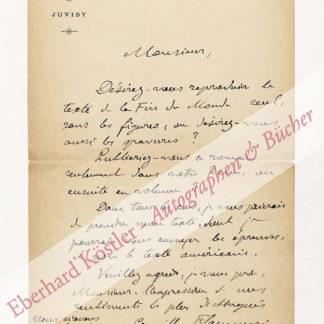 JUVISY
Monsieur,
Désirez-vous reproduire le
texte de la Fin du Monde seul,
sans les figures, ou désirez-vous
aussi les gravures ?
Publieriez-vous ce roman
seulement dans votre ou
ensuite en volume
Dans tous je vous prierais
de prendre mon texte, dont je
pourrais vous envoyer les épreuves,
et non le texte américain.
Veuillez agréer, je vous prie,
Monsieur, l'expression de mes
sentiments les plus distingués
Flammarion
Eberhard Köstler Autographen & Bücher